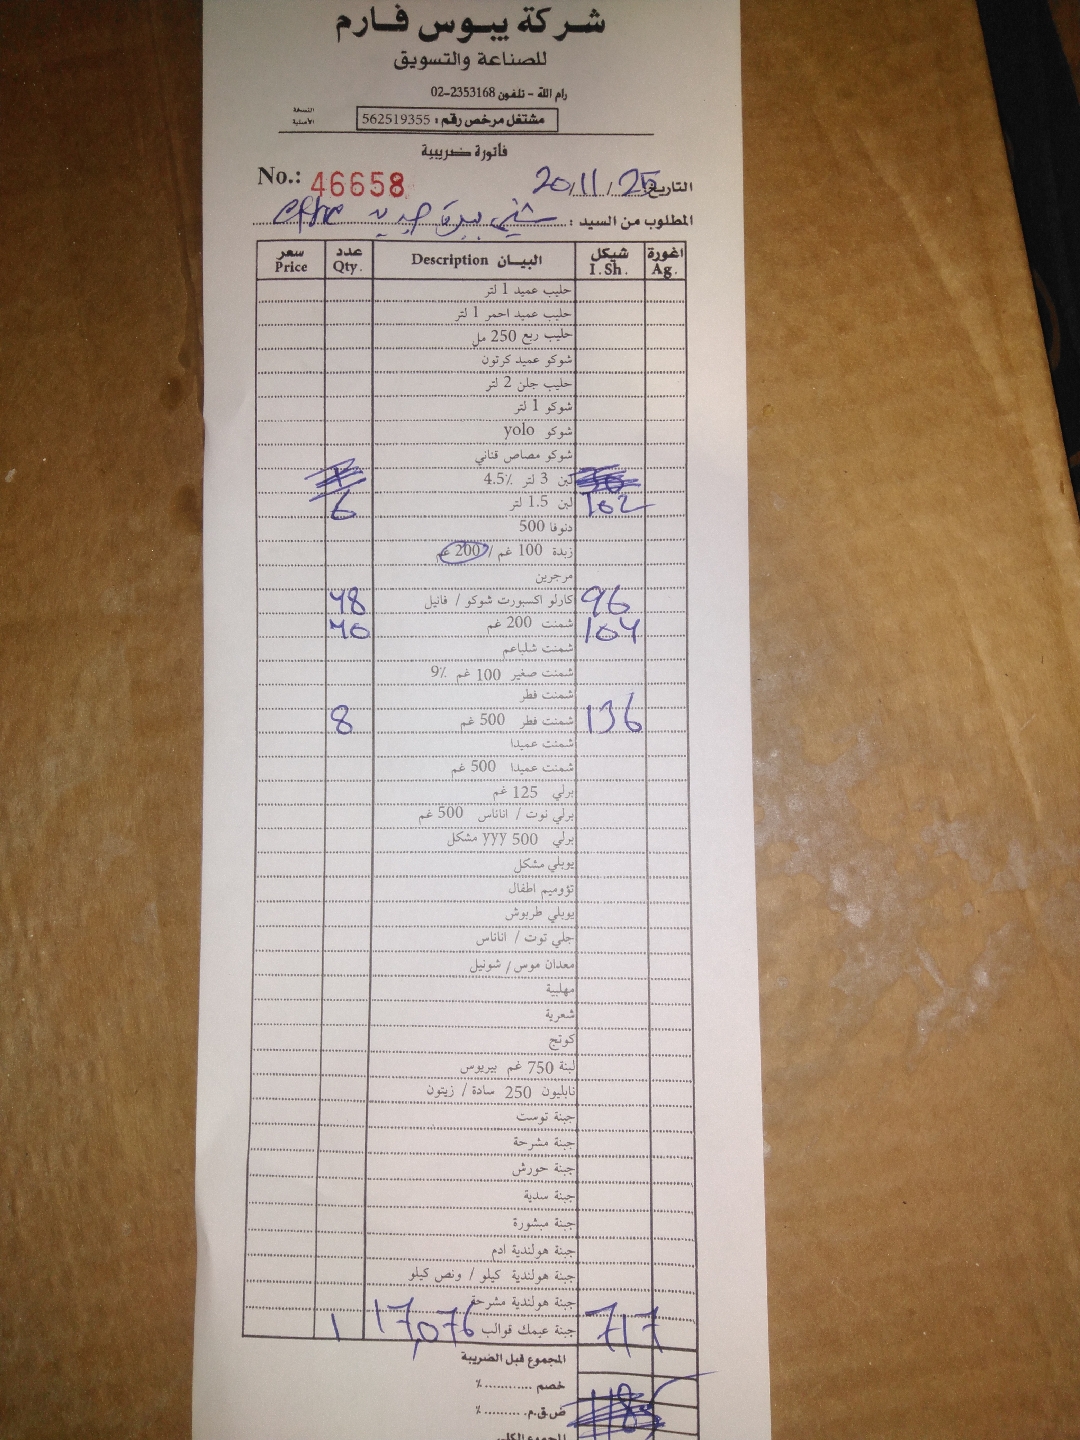 شركة يبوس فارم
للصناعة والتسويق
رام الله - تلفون 02-2353168
النسخة الأصلية
مشتغل مرخص رقم: 562519355
فاتورة ضريبية
No.: 46658
التاريخ 20/11/25
المطلوب من السيد:
سعر Price عدد Qty. البيـان Description شيكل I.Sh. اغورة Ag.
حليب عميد 1 لتر
حليب عميد احمر 1 لتر
حليب ربع 250 مل
شوكو عميد كرتون
حليب جلن 2 لتر
شوكو 1 لتر
شوكو yolo
شوكو مصاص قناني
لبن 3 لتر 4.5٪
6 لبن 1.5 لتر 102
دنوفا 500
زبدة 100 غم / 200 غم
مرجرين
48 كارلو اكسبورت شوكو / فانيل 96
40 شمنت 200 غم 104
شمنت شلباعم
شمنت صغير 100 غم 9٪
شمنت فطر
8 شمنت فطر 500 غم 136
شمنت عميدا
شمنت عميدا 500 غم
برلي 125 غم
برلي توت / اناناس 500 غم
برلي 500 yyy مشكل
يوبلي مشكل
تؤوميم اطفال
يوبلي طربوش
جلي توت / اناناس
معدان موس / شونيل
مهلبية
شعرية
كوتج
لبنة 750 غم بيريوس
نابليون 250 سادة / زيتون
جبنة توست
جبنة مشرحة
جبنة حورش
جبنة سدية
جبنة مبشورة
جبنة هولندية ادم
جبنة هولندية كيلو / ونص كيلو
جبنة هولندية مشرحة
1 جبنة عيمك قوالب 17,076 717
المجموع قبل الضريبة
خصم ............ ٪
ض.ق.م. .......... ٪
المجموع الكلي